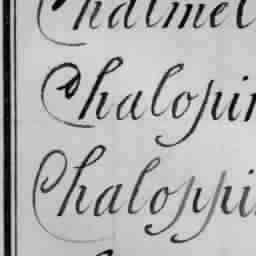 Chalmel
Chalopin
Chaloppi